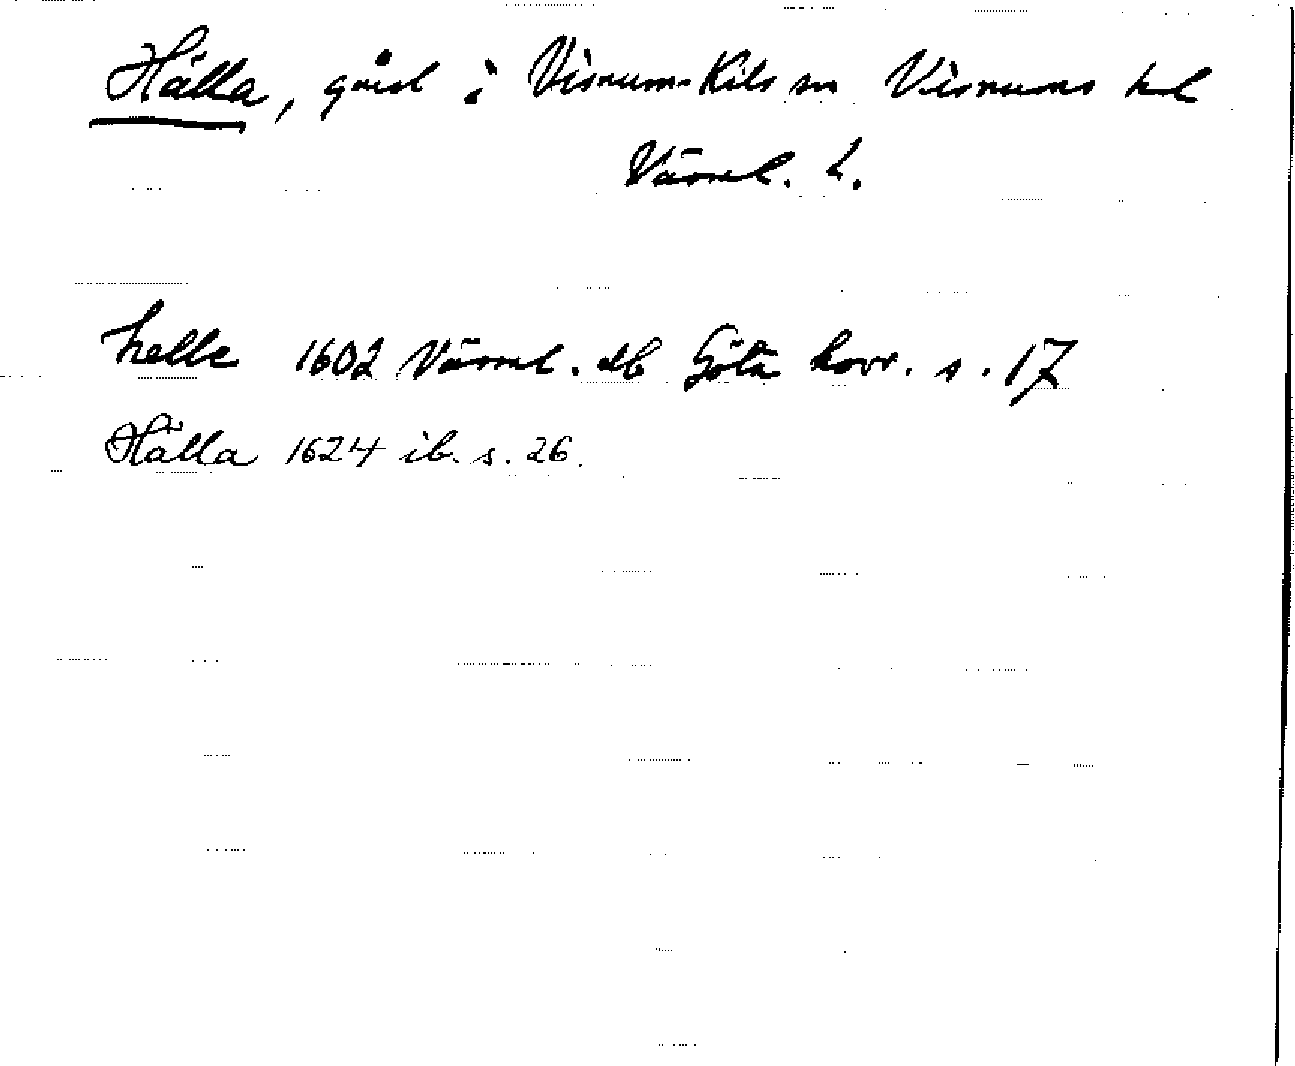 Hälla, gård i Visnums-Kils sn Visnums hd
Värml. l.
helle 1602 Värml. db Göta hovr. s. 17
Hälla 1624 ib. s. 26.